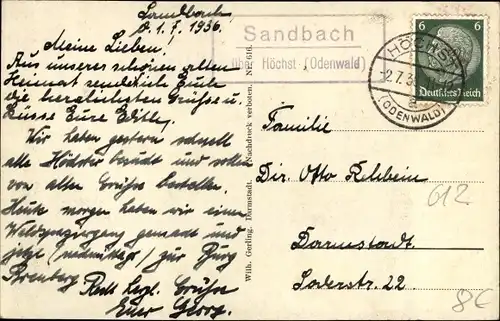 Sandbach,
d. 1.7.1936.
Meine Lieben.
Aus unserer schönen alten
Heimat sendet Euch
die herzlichsten Grüsse u.
Küsse Eure Edith,
Wir haben gestern schnell
alle Höchster besucht und sollen
von allen Grüsse bestellen.
Heute morgen haben wir einen
Waldspaziergang gemacht und
jetzt zur Burg
Breuberg. Recht herzl. Grüsse
Euer Georg.
Sandbach
über Höchst (Odenwald)
HÖCHST
2.7.3
a
(ODENWALD)
6 6
Deutsches Reich
Wilh. Gerling, Darmstadt. Nachdruck verboten. No. 616.
Familie
Dir. Otto Rehbein
Darmstadt.
Soderstr. 22.
612
8€